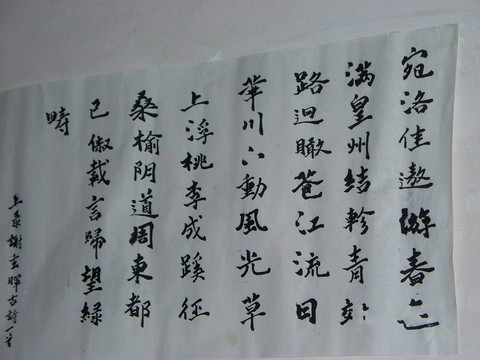 宛洛佳遨游春色
满皇州结轸青郊
路迴瞰苍江流日
華川動風光草
上浮桃李成蹊径
桑榆阴道周東都
已俶載言歸望緑
畴
上录謝玄暉古詩一首